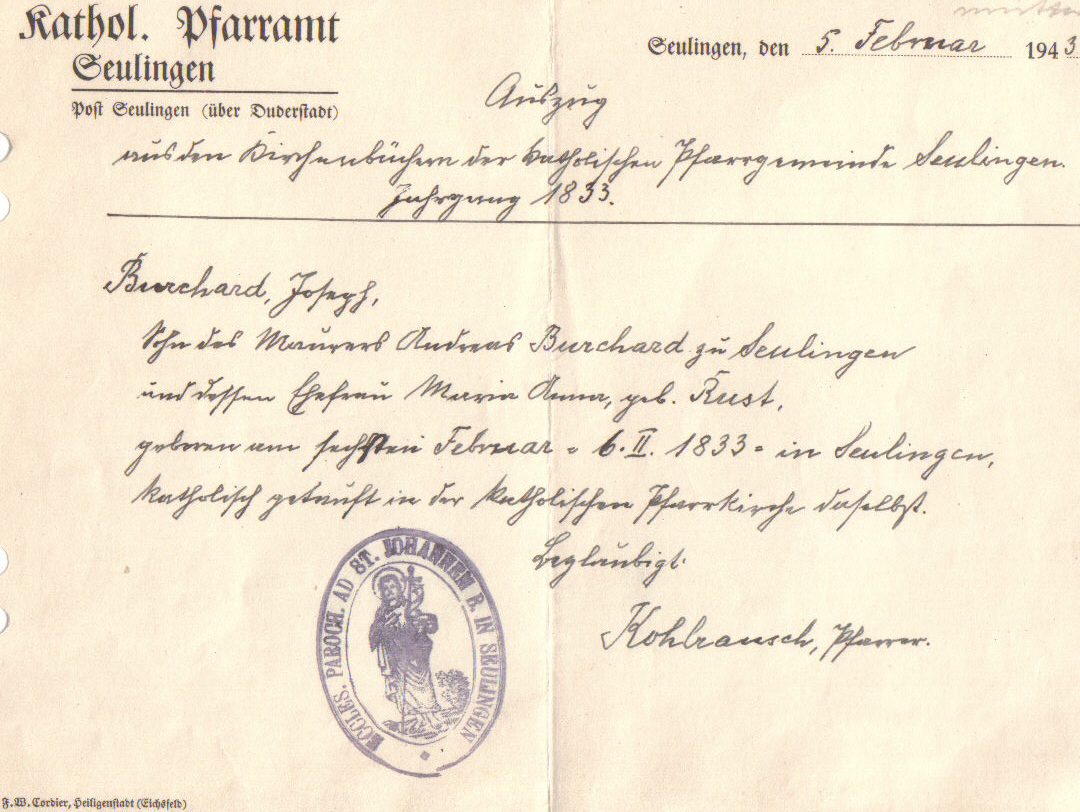 Kathol. Pfarramt
Seulingen
Post Seulingen (über Duderstadt)
Seulingen, den 5. Februar 1943
Auszug
aus den Kirchenbüchern der katholischen Pfarrgemeinde Seulingen.
Jahrgang 1833.
Burchard, Joseph,
Sohn des Maurers Andreas Burchard zu Seulingen
und dessen Ehefrau Maria Anna, geb. Rust,
geboren am sechsten Februar = 6. II. 1833 = in Seulingen,
katholisch getauft in der katholischen Pfarrkirche daselbst.
Beglaubigt:
Kohlrausch, Pfarrer.
ECCLES. PAROCH. AD ST. JOHANNEM B. IN SEULINGEN
F. W. Cordier, Heiligenstadt (Eichsfeld)